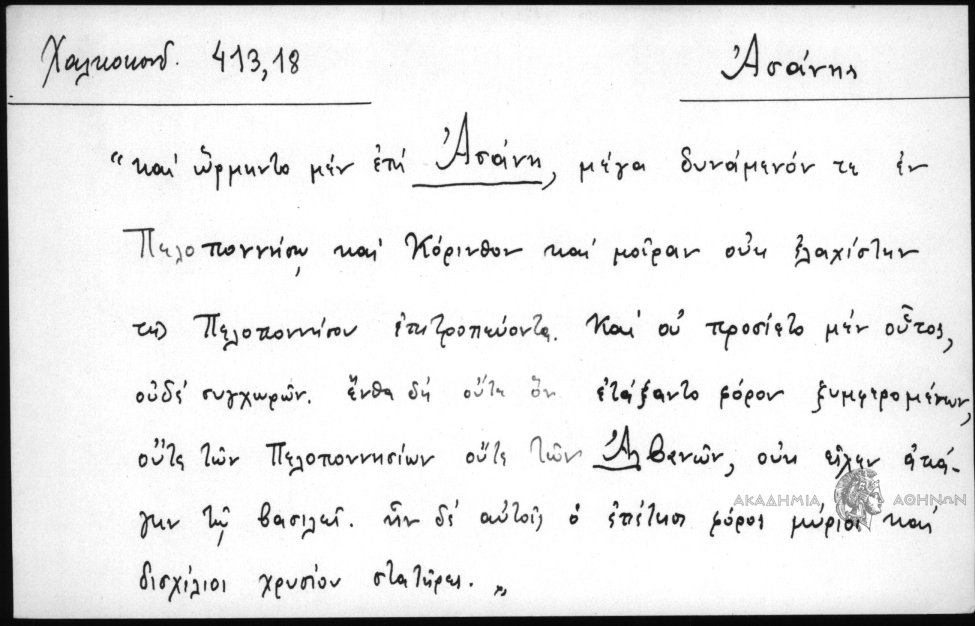 Χαλκοκονδ. 413,18
Ἀσάνης
“και ὥρμηντο μέν ἐπί Ἀσάνη, μέγα δυνάμενόν τε ἐν
Πελοποννήσῳ και Κόρινθον και μοῖραν οὐκ ἐλαχίστην
τῆς Πελοποννήσου ἐπιτροπεύοντα. Και οὐ προσίετο μέν οὗτος,
οὐδέ συγχωρῶν. ἔνθα δή οὔτε ὃν ἐτάξαντο φόρον ξυμφερομένων,
οὔτε τῶν Πελοποννησίων οὔτε τῶν Ἀλβανῶν, οὐκ εἶχεν
τῷ βασιλεῖ. ἦν δέ αὐτοῖς ὁ ἐπέτειος φόρος μύριοι και
δισχίλιοι χρυσίου στατῆρες.„
ΑΚΑΔΗΜΙΑ ΑΘΗΝΩΝ